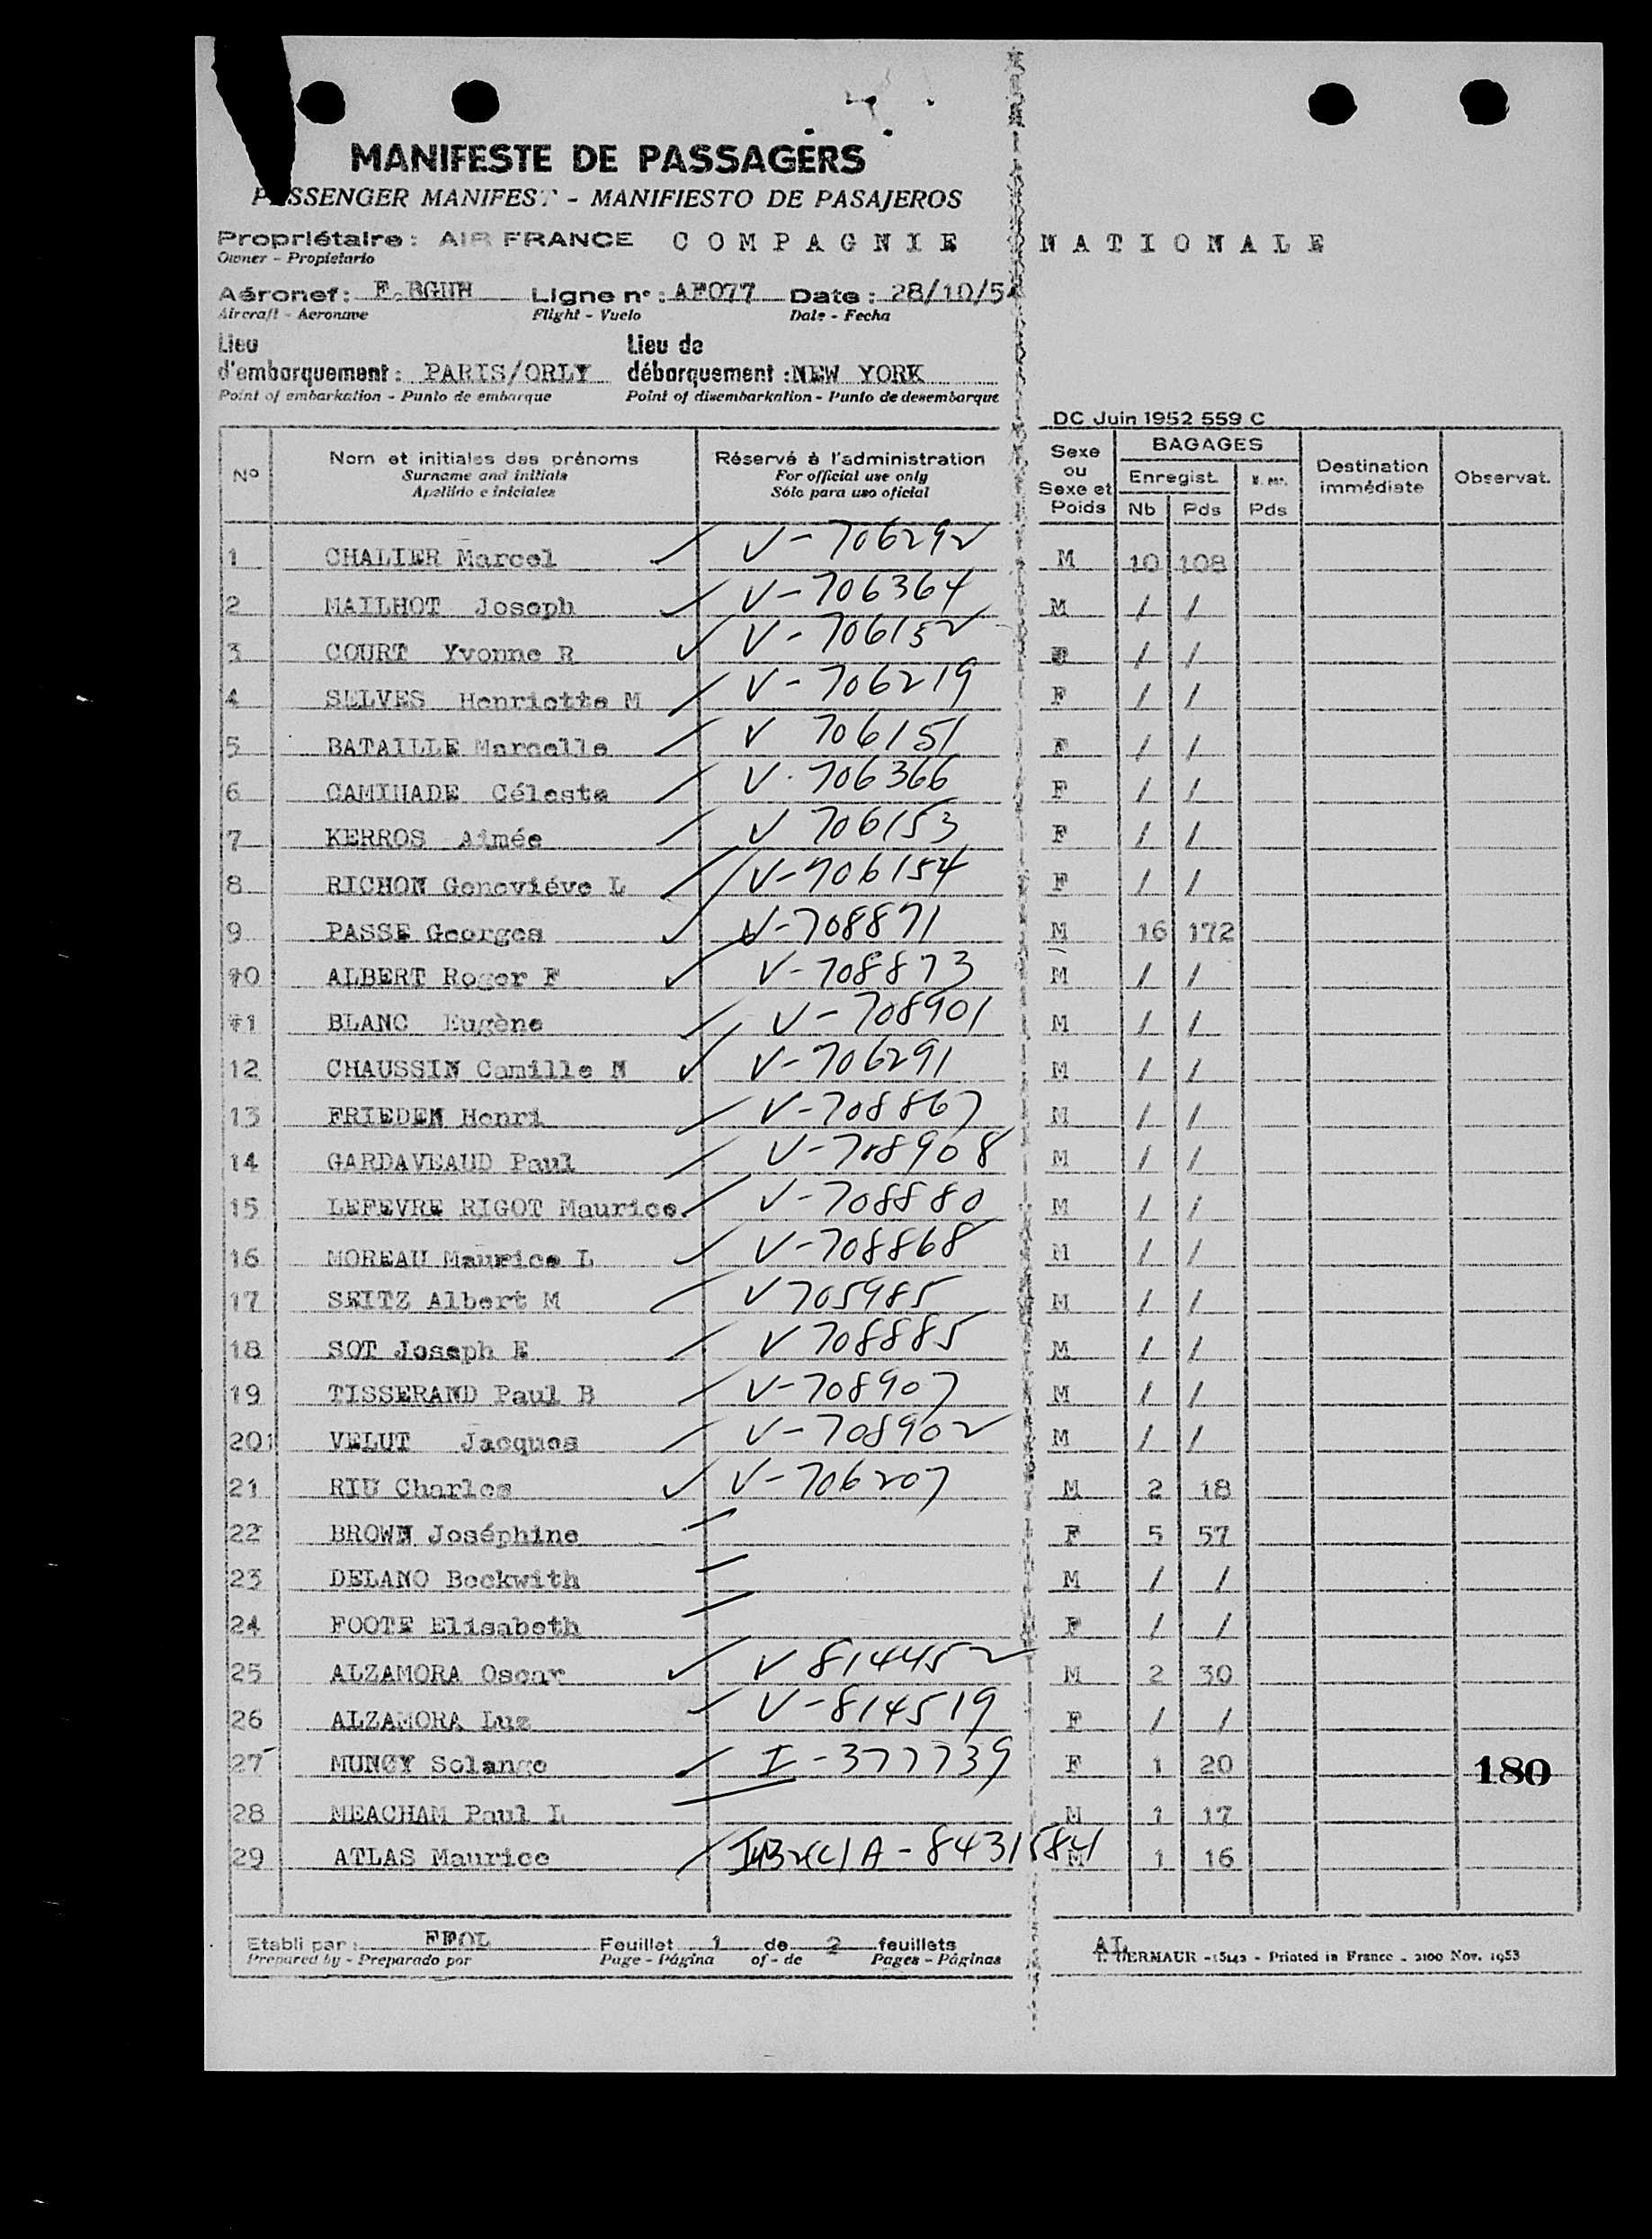 MANIFESTE DE PASSAGERS
PASSENGER MANIFEST - MANIFIESTO DE PASAJEROS
Propriétaire : AIR FRANCE COMPAGNIE NATIONALE
Owner - Propietario
Aéronef : F.BGNH Ligne n° : AF077 Date : 28/10/54
Aircraft - Aeronave Flight - Vuelo Date - Fecha
Lieu Lieu de
d'embarquement : PARIS/ORLY débarquement : NEW YORK
Point of embarkation - Punto de embarque Point of disembarkation - Punto de desembarque
DC Juin 1952 559 C
N° Nom et initiales des prénoms Réservé à l'administration Sexe ou Sexe et Poids BAGAGES Destination immédiate Observat.
Surname and initials For official use only Enregist.
Apellido e iniciales Sólo para uso oficial Nb Pds Pds
1 CHALIER Marcel V-706292 M 10 108
2 MAILHOT Joseph V-706364 M / /
3 COURT Yvonne R V-706152 / /
4 SELVES Henriette M V-706219 F / /
5 BATAILLE Marcelle V 706151 F / /
6 CAMINADE Céleste V. 706366 F / /
7 KERROS Aimée V 706153 F / /
8 RICHON Geneviéve L V-706154 F / /
9 PASSE Georges V-708871 M 16 172
10 ALBERT Roger F V-708873 M / /
11 BLANC Eugène V-708901 M / /
12 CHAUSSIN Camille M V-706291 M / /
13 FRIEDEN Henri V-708867 M / /
14 GARDAVEAUD Paul V-708908 M / /
15 LEFEVRE RIGOT Maurice V-708880 M / /
16 MOREAU Maurice L V-708868 M / /
17 SEITZ Albert M V 705985 M / /
18 SOT Joseph E V 708885 M / /
19 TISSERAND Paul B V-708907 M / /
20 VELUT Jacques V-708902 M / /
21 RIU Charles V-706207 M 2 18
22 BROWN Joséphine F 5 57
23 DELANO Beckwith M / /
24 FOOTE Elisabeth F / /
25 ALZAMORA Oscar V 814452 M 2 30
26 ALZAMORA Luz V-814519 F / /
27 MUNCY Solange I-377739 F 1 20 180
28 MEACHAM Paul L M 1 17
29 ATLAS Maurice A-8431584 M 1 16
Etabli par : Feuillet 1 de 2 feuillets AL
Prepared by - Preparado por Page - Página of - de Pages - Páginas Printed in France - 2100 Nov. 1953